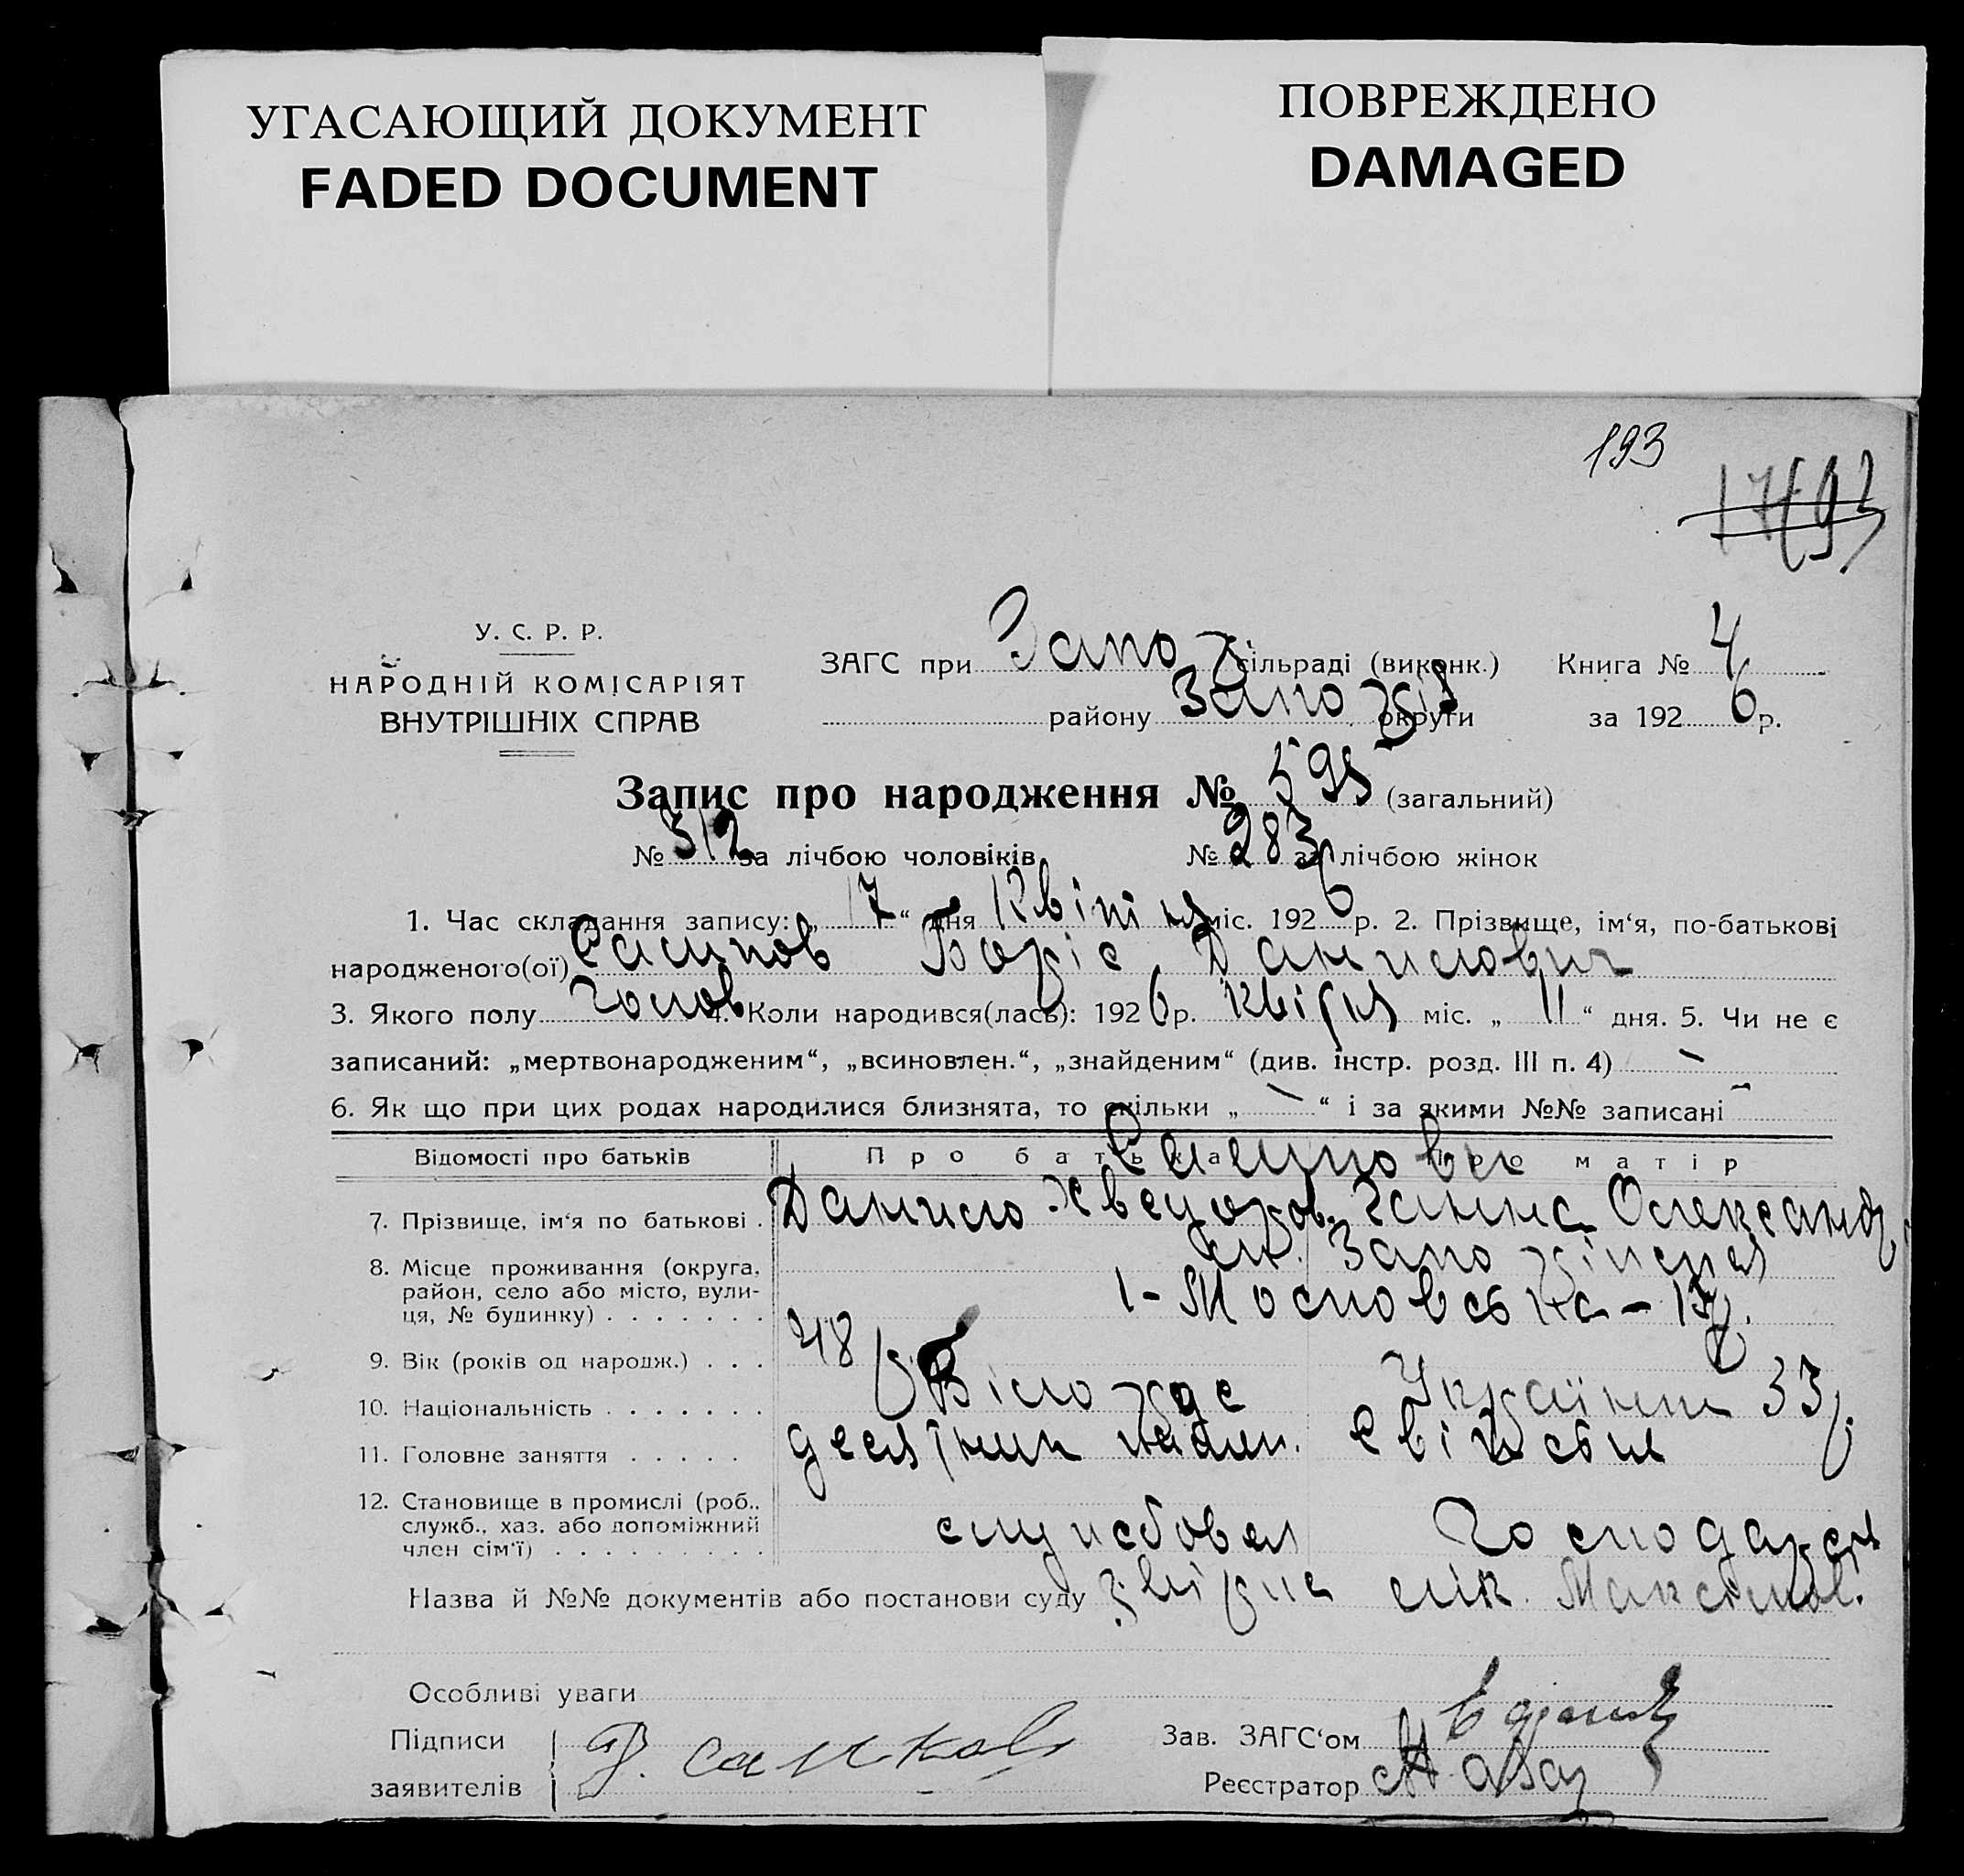 УГАСАЮЩИЙ ДОКУМЕНТ
FADED DOCUMENT
ПОВРЕЖДЕНО
DAMAGED
193
У. С. Р. Р.
НАРОДНІЙ КОМІСАРІЯТ
ВНУТРІШНІХ СПРАВ
ЗАГС при Запо сільраді (виконк.) Книга № 4
району Запо округи за 1926 р.
Запис про народження № 595 (загальний)
№ 312 за лічбою чоловіків № 283 за лічбою жінок
1. Час складання запису: „17“ дня Квітня міс. 1926 р. 2. Прізвище, ім‘я, по-батькові
народженого(ої) Боріс Данилович
3. Якого полу Голов 4. Коли народився(лась): 1926 р. Квітня міс. „11“ дня. 5. Чи не є
записаний: „мертвонародженим“, „всиновлен.“, „знайденим“ (див. інстр. розд. III п. 4) –
6. Як що при цих родах народилися близнята, то скільки „–“ і за якими №№ записані –
Відомості про батьків Про батька Про матір
7. Прізвище, ім‘я по батькові . Данило Хведоров. Ганна Олександ.
8. Місце проживання (округа, район, село або місто, вулиця, № будинку) . . . . . . . Запо
1 - Московська -
9. Вік (років од народж.) . . . 48 33 р.
10. Національність . . . . . . . Українка
11. Головне заняття . . . . . десятник
12. Становище в промислі (роб., служб., хаз. або допоміжний член сім‘ї) . . . . . . . . . службовец Господарст
Назва й №№ документів або постанови суду довідка лік.
Особливі уваги
Підписи
заявителів
Зав. ЗАГС‘ом
Реєстратор